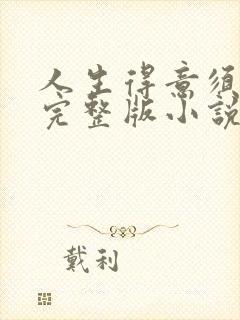 人生得意须
完整版小说
戴利